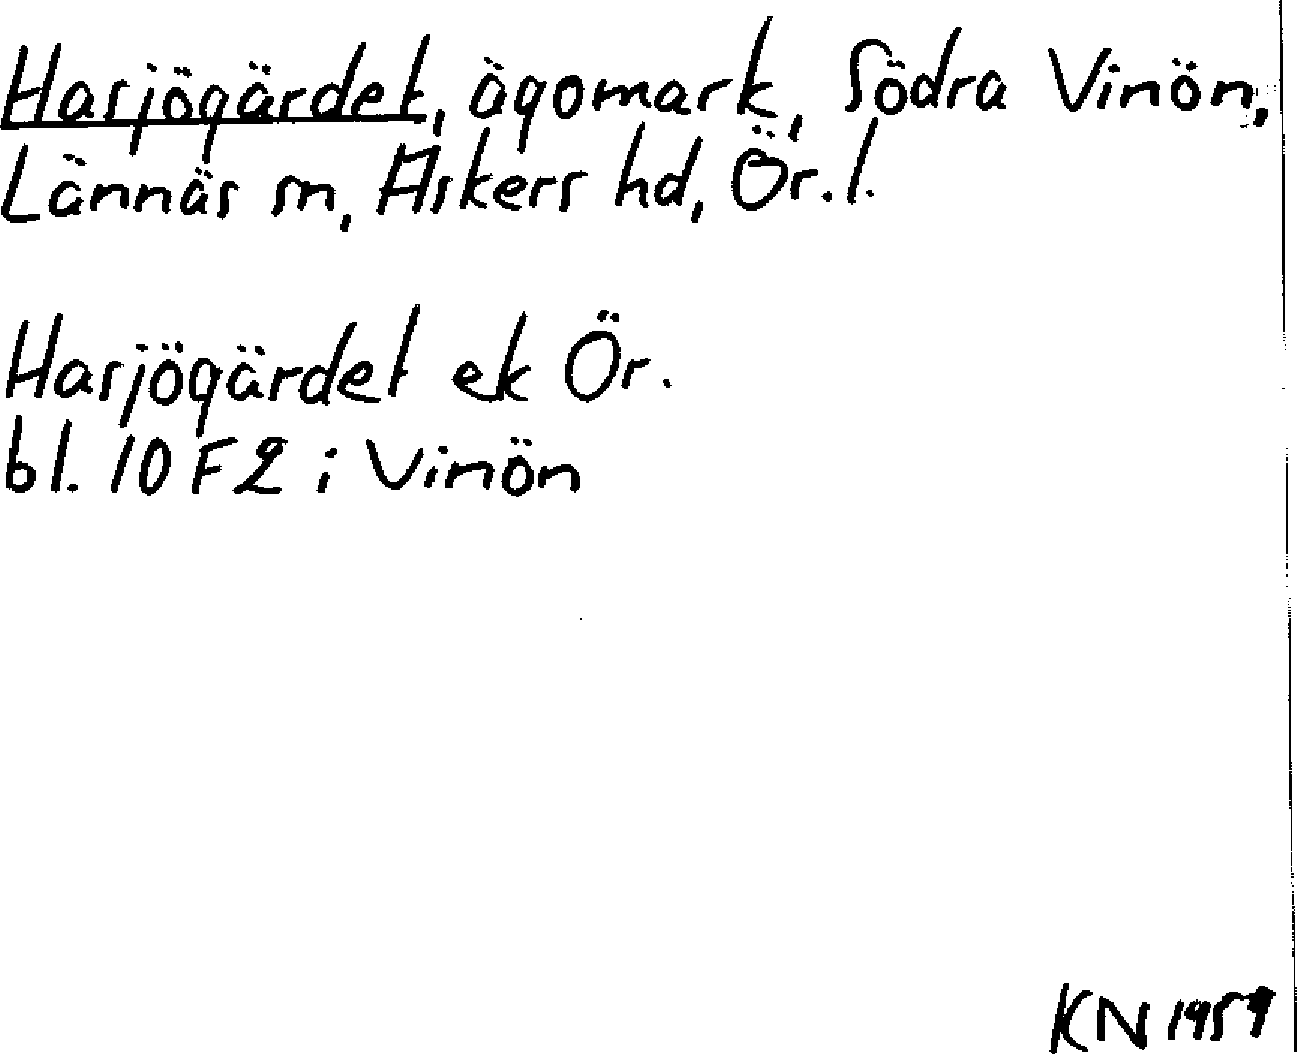 Hasjögärdet, ägomark, Södra Vinön,
Lännäs sn, Askers hd, Ör. l.
Hasjögärdet ek Ör.
bl. 10 F 2 i Vinön
KN 1959